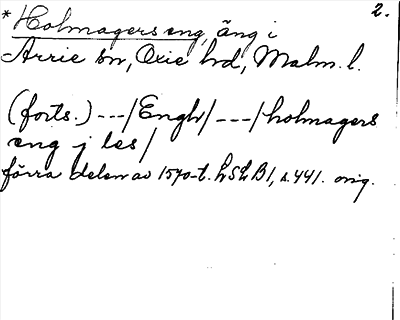 2.
*Holmagers eng, äng i
Arrie sn, Oxie hd, Malm. l.
(forts.) ---/Engh/ ---/ holmagers
eng j les/
förra delen av 1570-t. LSLB1, s. 441. orig.